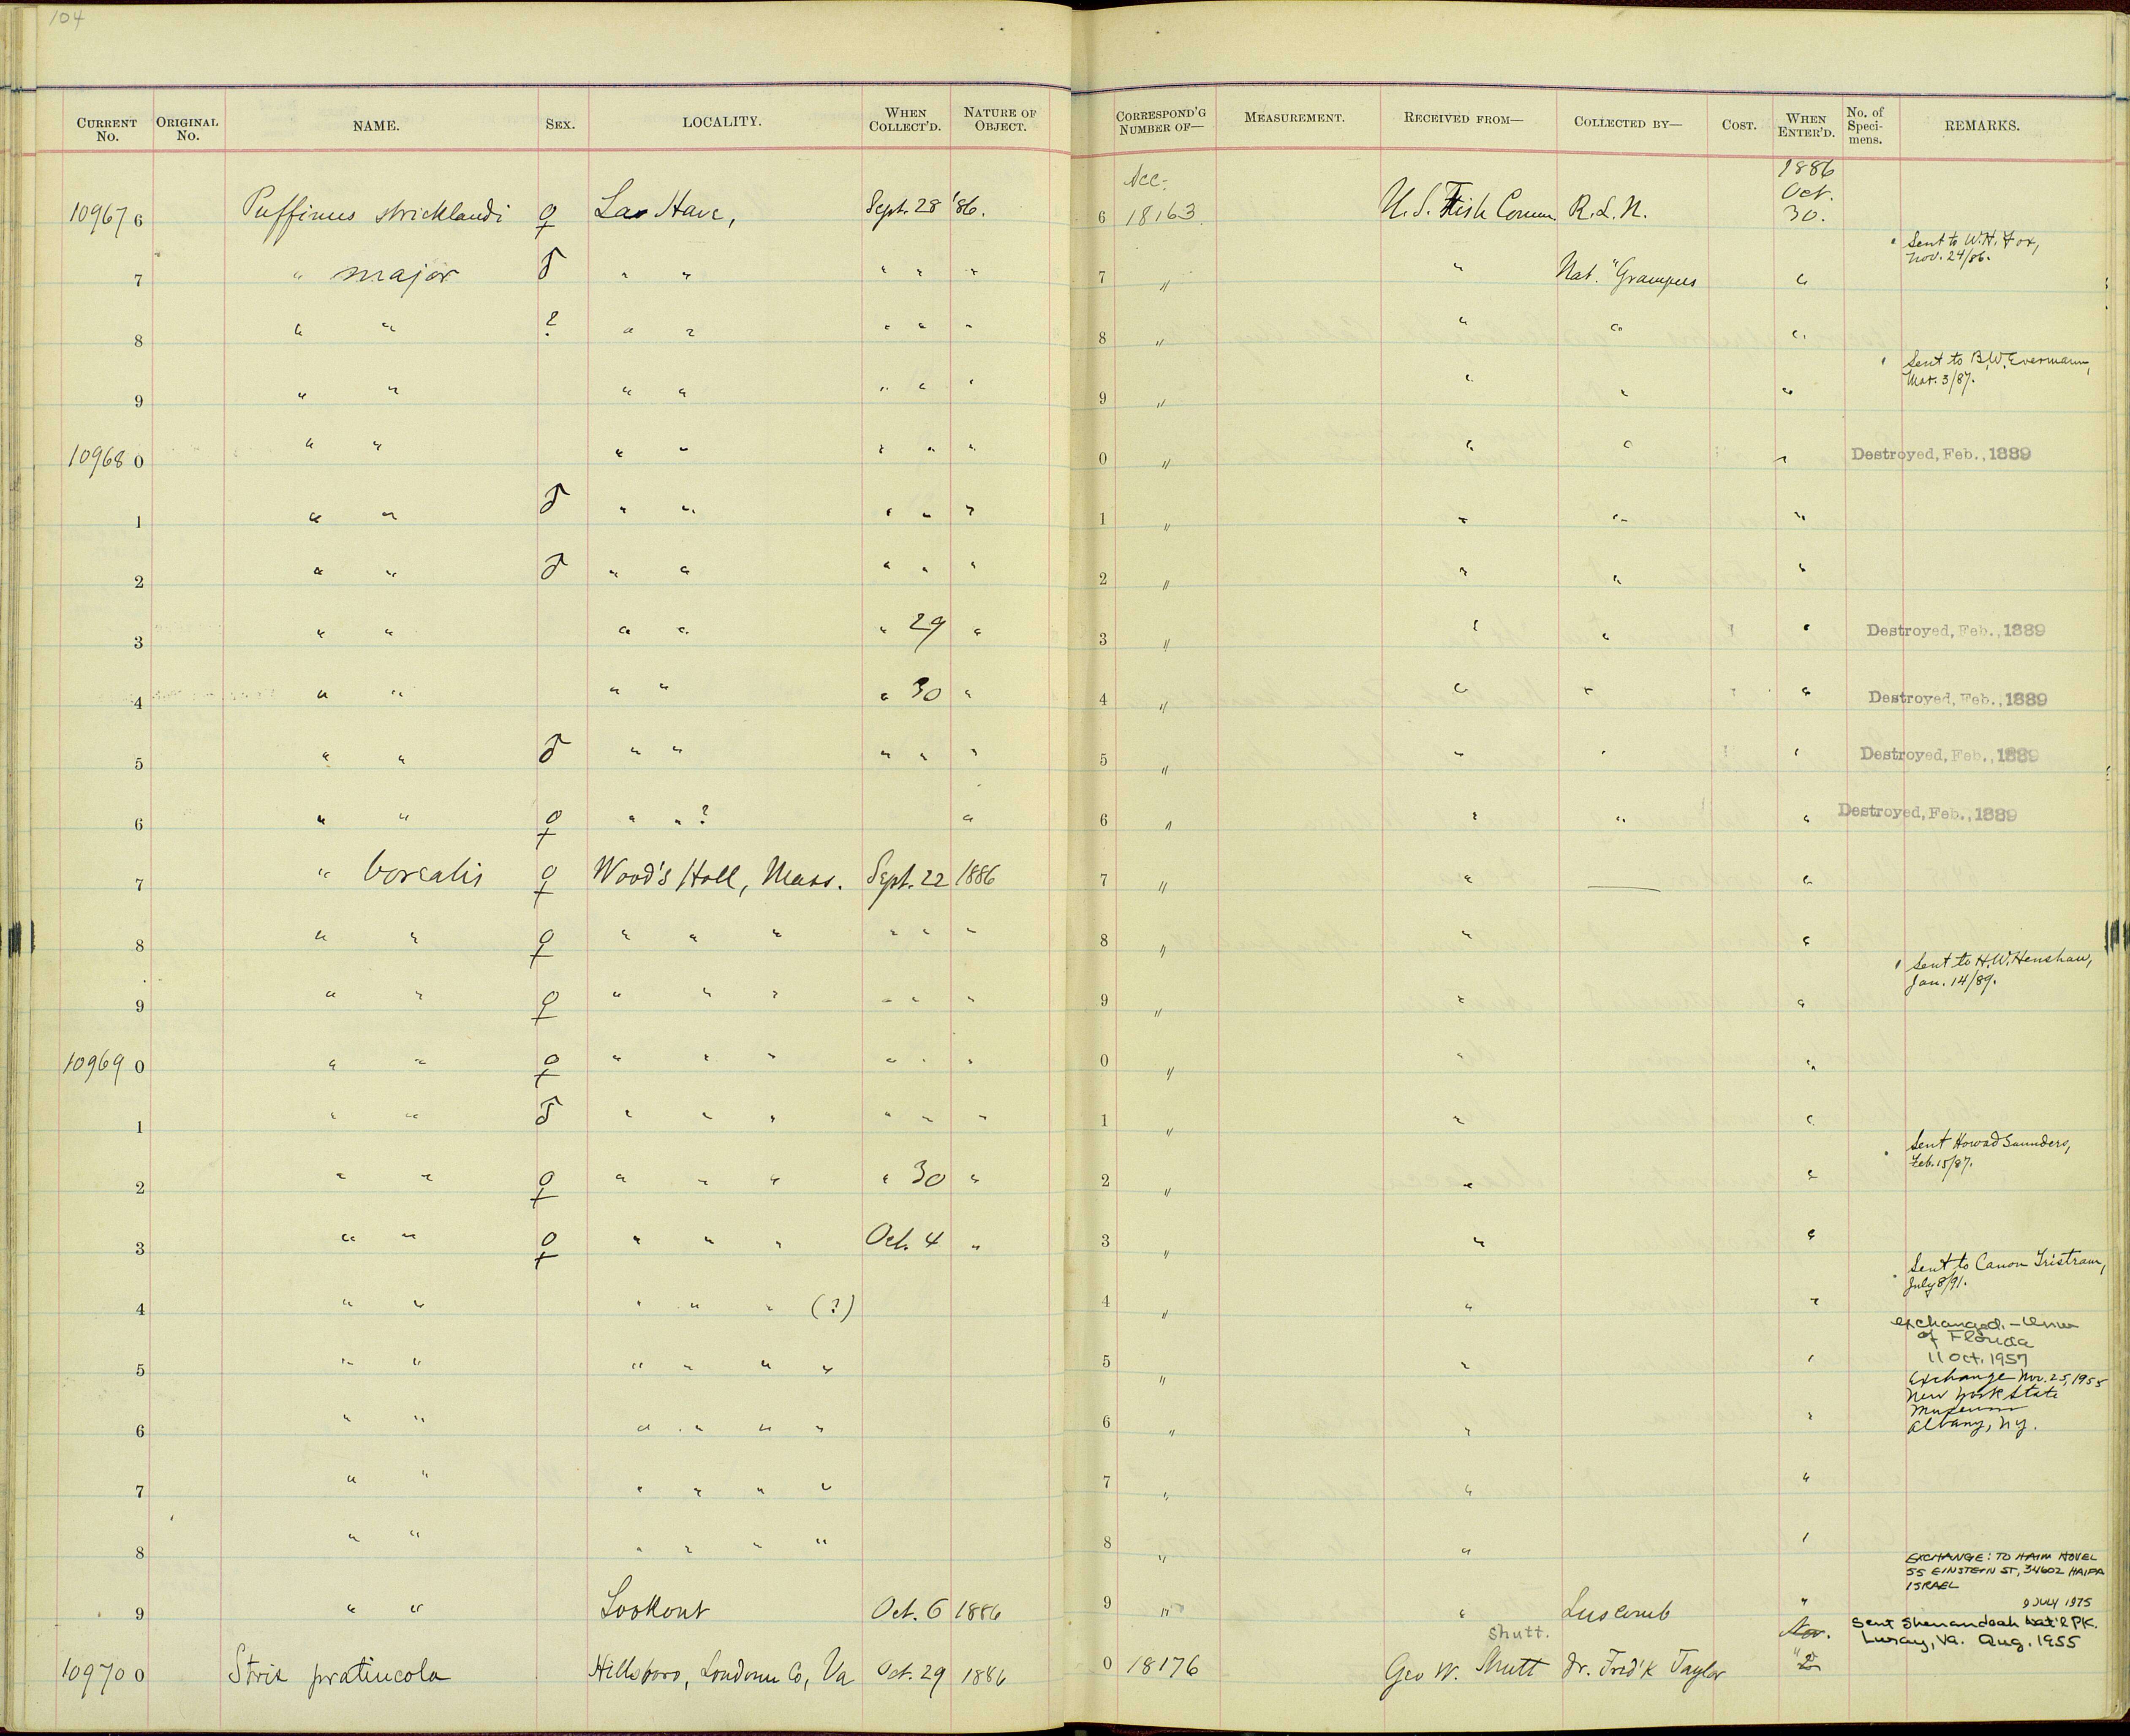 104
CURRENT No. ORIGINAL No. NAME. SEX. LOCALITY. WHEN COLLECT'D. NATURE OF OBJECT. CORRESPOND'G NUMBER OF— MEASUREMENT. RECEIVED FROM— COLLECTED BY— COST. WHEN ENTER'D. No. of Speci-mens. REMARKS.
Acc. 1886 Oct.
10967 6 Puffinus stricklandi ♀ La Have, Sept. 28 '86. 6 18163 U.S. Fish Comm. R.L.N. 30.
7 " major ♂ " " " " " 7 " " Nat. "Grampus " Sent to W.H. Fox, Nov. 24/86.
8 " " ? " " " " " 8 " " " "
9 " " " " " " " 9 " " " " Sent to B.W. Evermann, Mar. 3/87.
10968 0 " " " " " " " 0 " " " " Destroyed, Feb., 1889
1 " " ♂ " " " " " 1 " " " "
2 " " ♂ " " " " " 2 " " " "
3 " " " " " 29 " 3 " " " " Destroyed, Feb., 1889
4 " " " " " 30 " 4 " " " " Destroyed, Feb., 1889
5 " " ♂ " " " " " 5 " " " " Destroyed, Feb., 1889
6 " " ♀ " " ? " 6 " " " " Destroyed, Feb., 1889
7 " borealis ♀ Wood's Holl, Mass. Sept. 22 1886 7 " " — "
8 " " ♀ " " " " " " 8 " " "
9 " " ♀ " " " " " " 9 " " " Sent to H.W. Henshaw, Jan. 14/89.
10969 0 " " ♀ " " " " " " 0 " " "
1 " " ♂ " " " " " " 1 " " "
2 " " ♀ " " " " 30 " 2 " " " Sent Howad Saunders, Feb. 15/87.
3 " " ♀ " " " Oct. 4 " 3 " " "
4 " " " " " (?) 4 " " " Sent to Canon Tristram, July 8/91.
5 " " " " " " 5 " " " exchanged. - Univ of Florida 11 Oct. 1957
6 " " " " " " 6 " " " Exchange Nov. 25, 1955 New York State Museum Albany, N.Y.
7 " " " " " " 7 " " "
8 " " " " " " 8 " " "
9 " " Lookout Oct. 6 1886 9 " " Luscomb " EXCHANGE: TO HAIM HOVEL 55 EINSTEIN ST, 34602 HAIFA ISRAEL 9 JULY 1975
Shutt. Nov. Sent Shenandoah Nat'l PK. Luray, Va. Aug. 1955
10970 0 Strix pratincola Hillsboro, Loudoun Co, Va Oct. 29 1886 0 18176 Geo W. Shutt Dr. Fred'k Taylor " 2